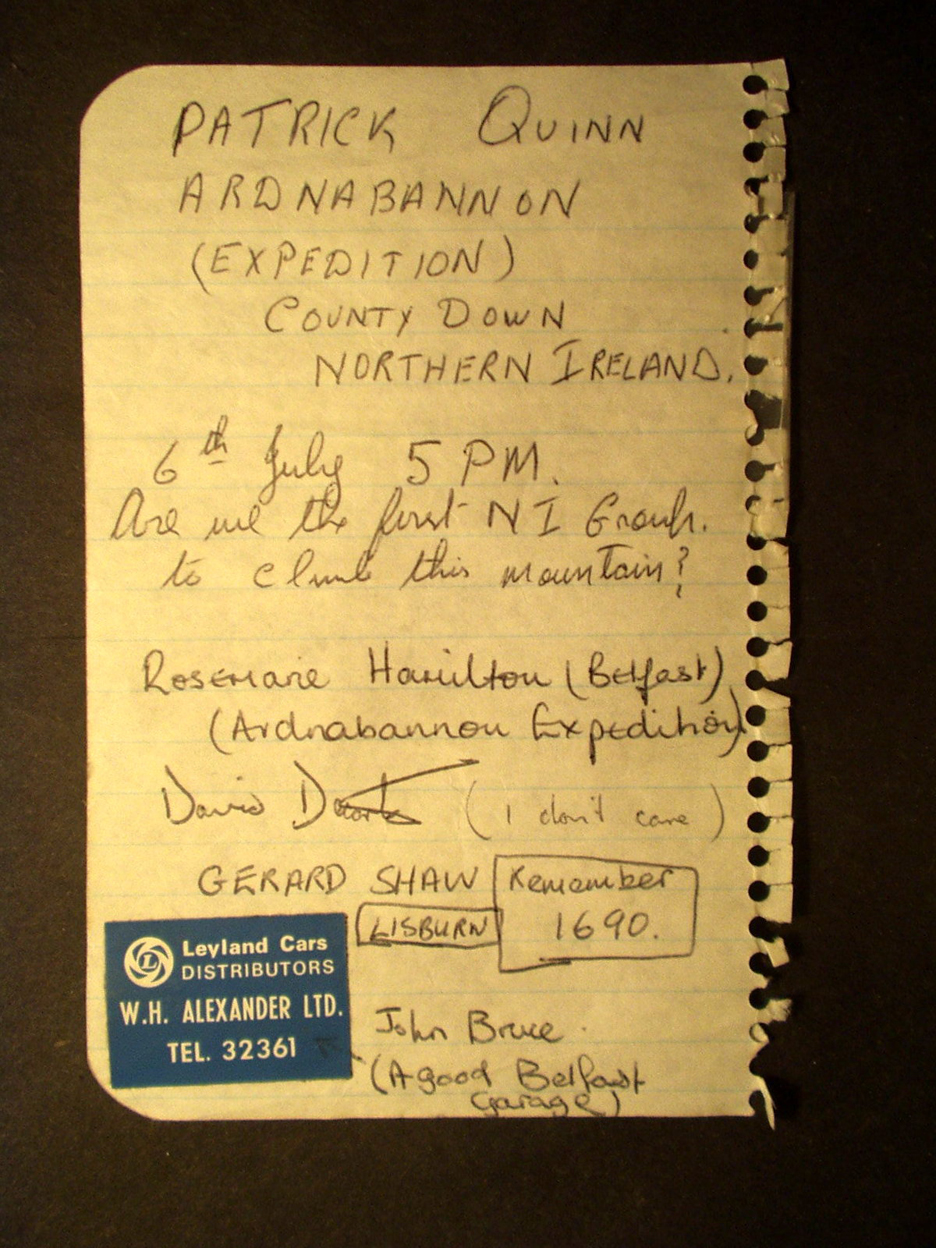 PATRICK QUINN
ARDNABANNON
(EXPEDITION)
COUNTY DOWN
NORTHERN IRELAND.
6th July 5 PM.
Are we the first NI Group.
to climb this mountain?
Rosemarie Hamilton (Belfast)
(Ardnabannon Expedition)
David (I don't care)
GERARD SHAW Remember
LISBURN 1690.
Leyland Cars
DISTRIBUTORS
W.H. ALEXANDER LTD.
TEL. 32361
John Bruce
(A good Belfast
garage)